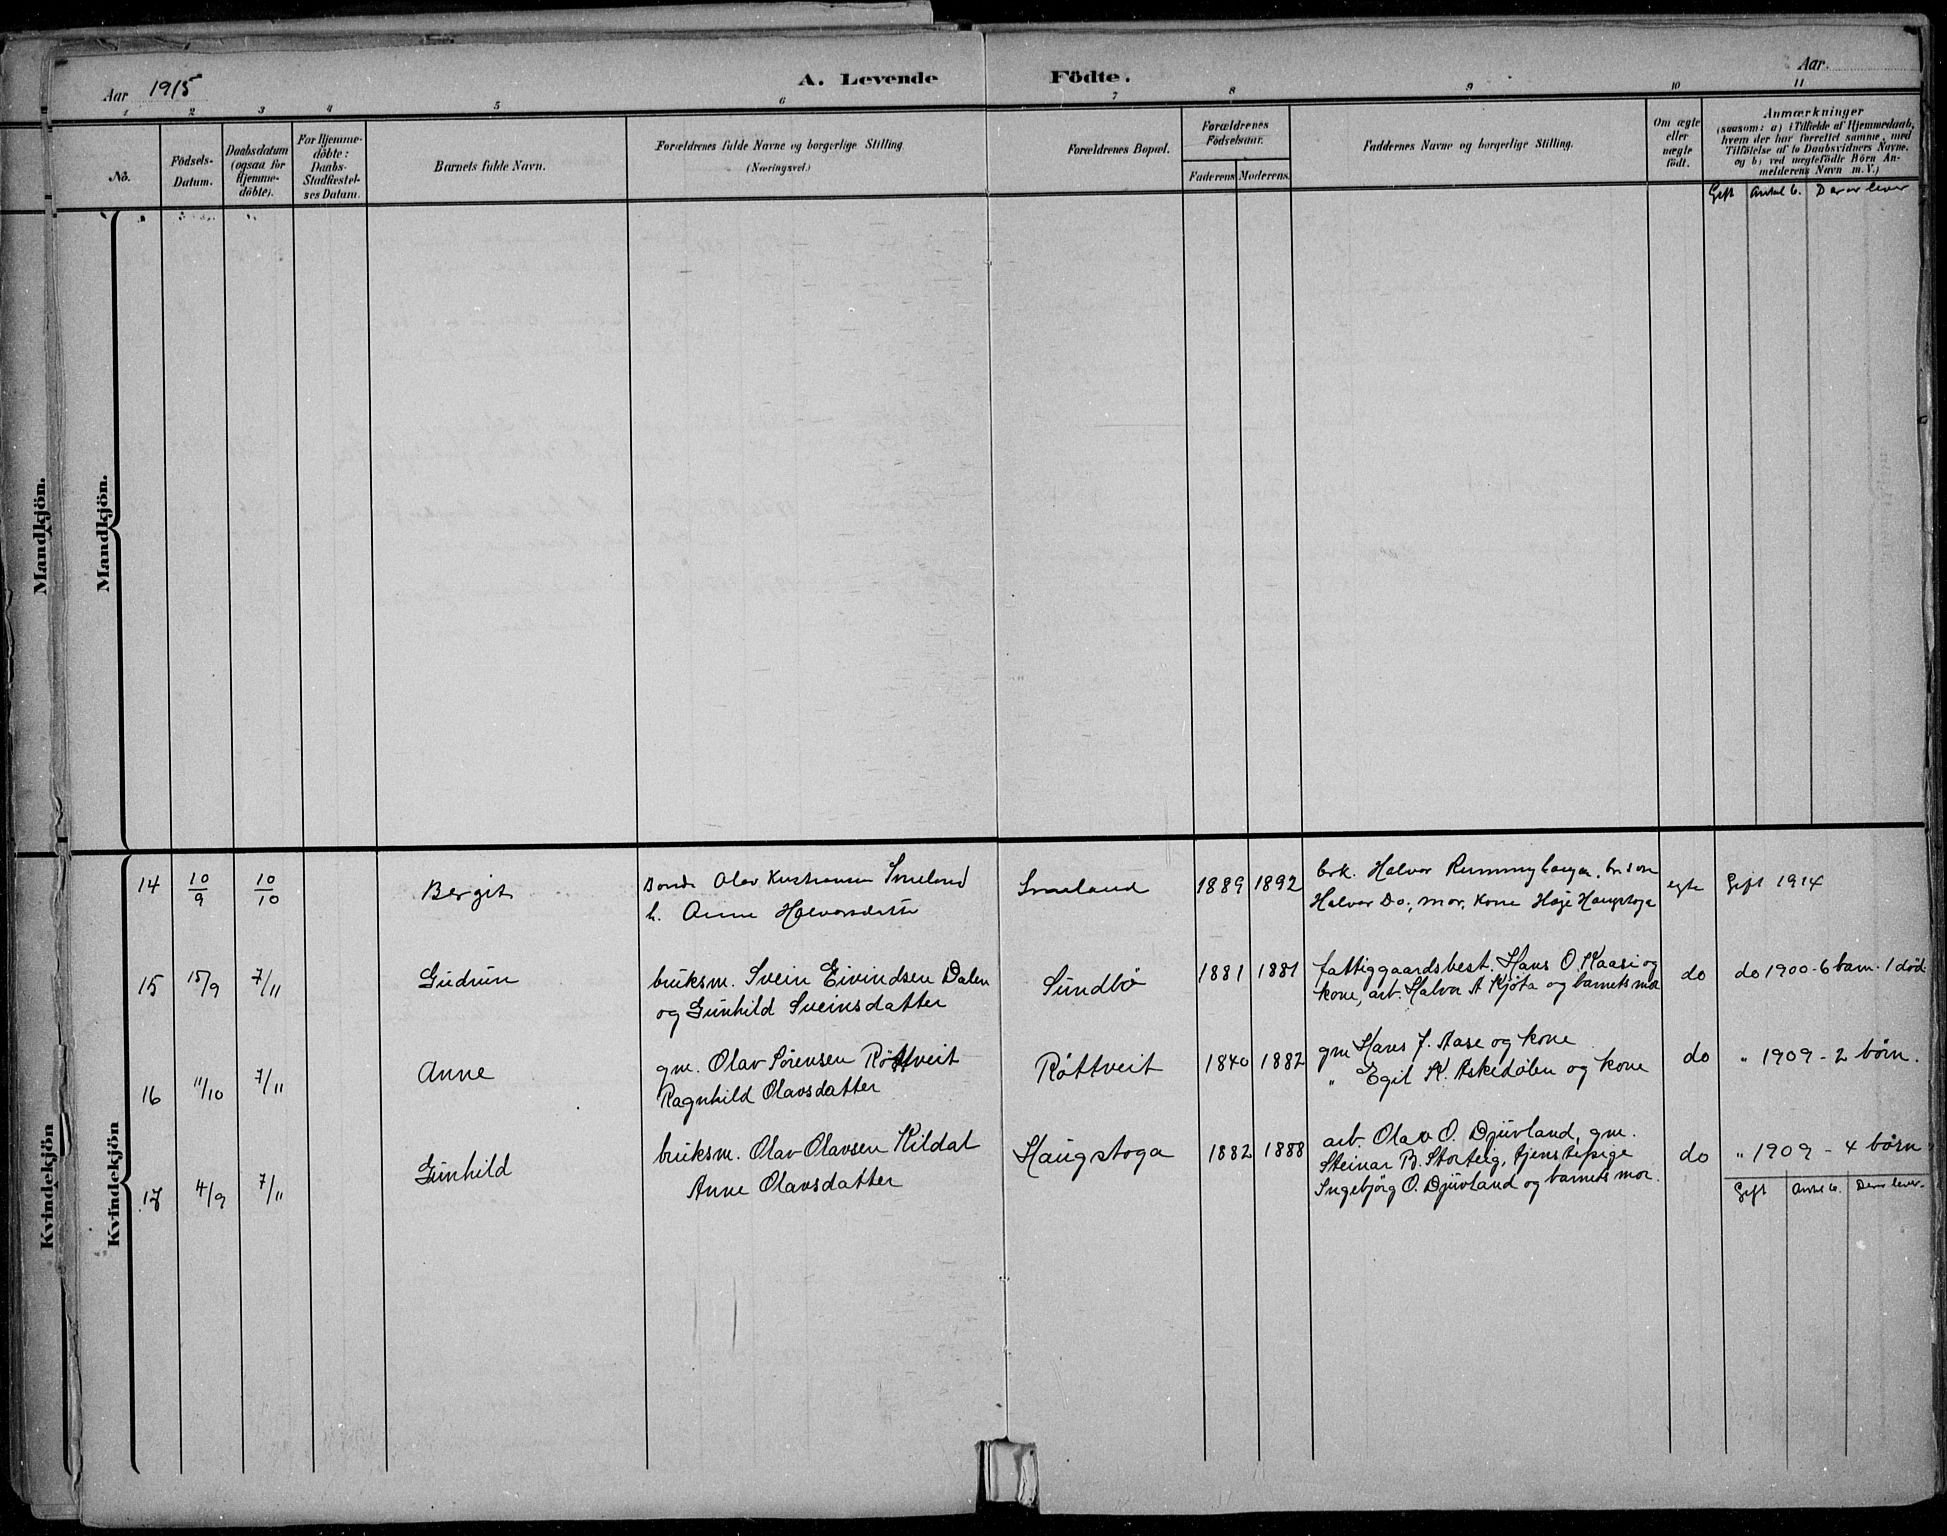 Aar 1915
A. Levende Födte.
Aar
1 2 3 4 5 6 7 8 9 10 11
No.
Födsels-
Datum.
Daabsdatum
(ogsaa for
Hjemme-
döbte).
For Hjemme-
döbte:
Daabs-
Stadfæstel-
ses Datum.
Barnets fulde Navn.
Forældrenes fulde Navne og borgerlige Stilling
(Næringsvei.)
Forældrenes Bopæl.
Forældrenes
Födselsaar.
Faderens Moderens.
Faddernes Navne og borgerlige Stilling.
Om ægte
eller
uægte
födt.
Anmærkninger
(saasom: a) i Tilfælde af Hjemmedaab,
hvem der har forrettet samme, med
Tilföielse af to Daabsvidners Navne.
og b) ved uægtefödte Börn An-
melderens Navn m. V.)
Gift Antal b. Derav lever
Mandkjön.
Mandkjön.
Kvindekjön
Kvindekjön
14 10/9 10/10 Bergit
Olav Smeland
h. Anne Halvorsdatter
Smeland 1889 1892
brk. Halvor
Halvor Do., mor, kone Haugstoga
egte Gift 1914
15 15/9 7/11 Gudrun
bruksm. Svein Eivindsen Dalen
og Gunhild Sveinsdatter
Sundbø 1881 1881
fattiggaardsbest. Hans O. Kaasi og
kone, arb. Halvor A Kjøta og barnets mor
do do 1900 - 6 barn. 1 död
16 11/10 7/11 Anne
gm. Olav Sørensen Røttveit
Ragnhild Olavsdatter
Røttveit 1840 1882
gm Hans J. Aase og kone
" Egil K. Askedalen og kone
do " 1909 - 2 børn.
17 4/9 7/11 Gunhild
bruksm. Olav Olavsen Kildal
Anne Olavsdatter
Haugstoga 1882 1888
arb. Olav O. Djuvland, gm.
Steinar B. Storteig, tjenstepige
Ingebjørg O. Djuvland og barnets mor.
do " 1909 - 4 børn
Gift Antal b. Derav lever.